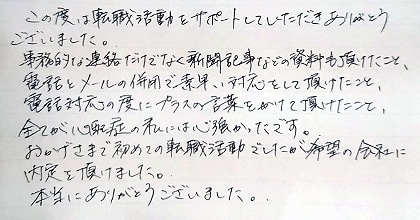 この度は転職活動をサポートしていただきありがとう
ございました。
事務的な連絡だけでなく新聞記事などの資料も頂けたこと、
電話とメールの併用で素早い対応をして頂けたこと、
電話対応の度にプラスの言葉をかけて頂けたこと、
全てが心配症の私には心強かったです。
おかげさまで初めての転職活動でしたが希望の会社に
内定を頂けました。
本当にありがとうございました。